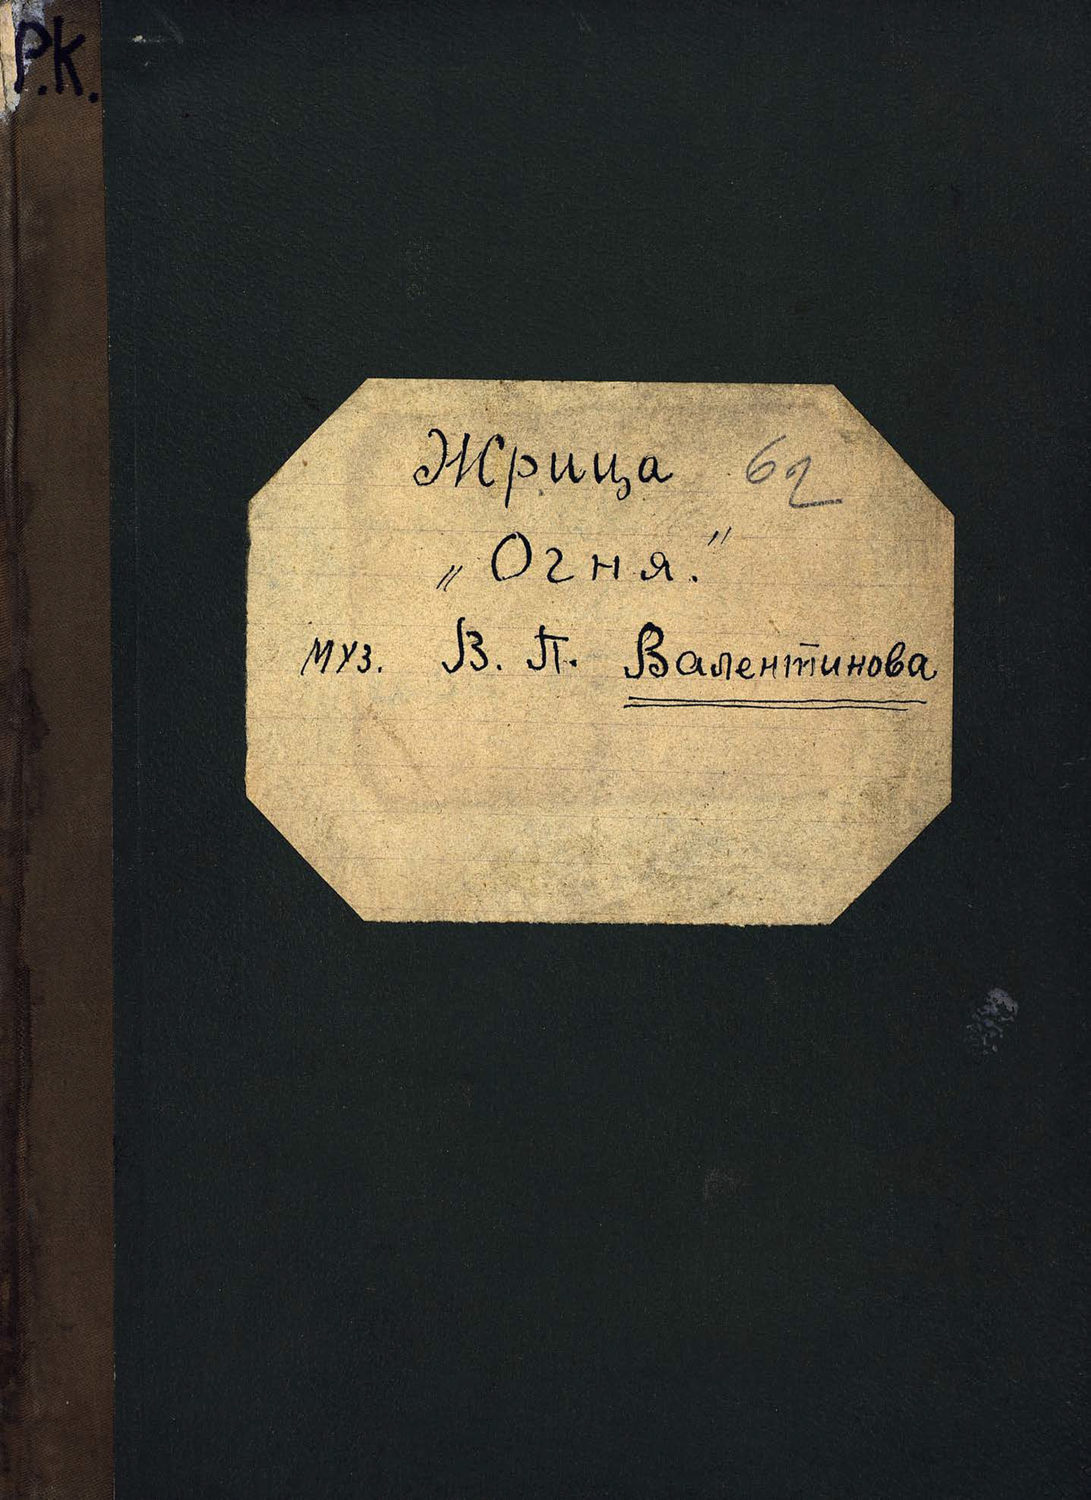 Р.К.
Жрица 62
„Огня."
муз. В. П. Валентинова